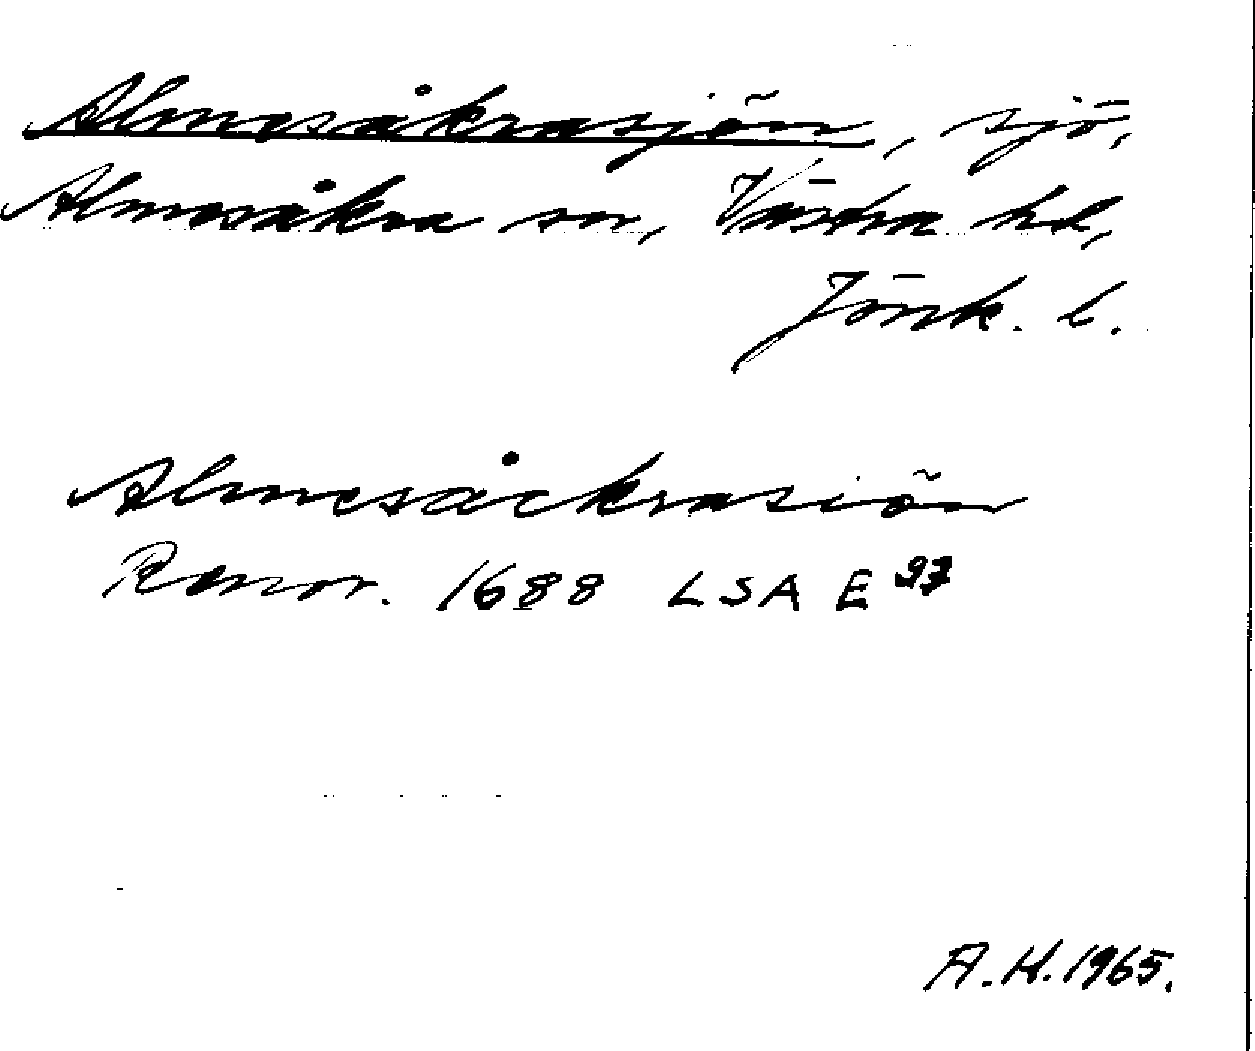 Almesåkrasjön, sjö,
Almesåkra sn, Västra hd,
Jönk. l.
Almesåckrasiön
Rannr. 1688 LSA E 97
A.H. 1965.